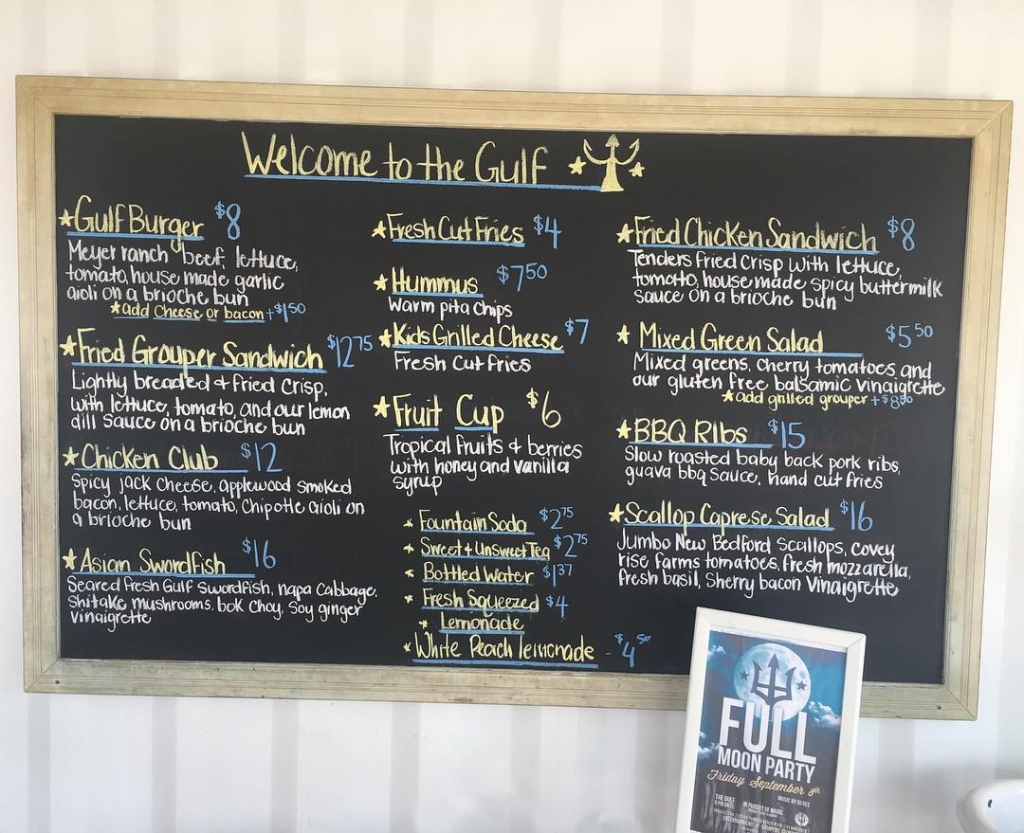 Welcome to the Gulf
Gulf Burger $8
Meyer ranch beef, lettuce,
tomato, house made garlic
aioli on a brioche bun
add Cheese or bacon +$1.50
Fried Grouper Sandwich $12.75
Lightly breaded + fried crisp,
with lettuce, tomato, and our lemon
dill sauce on a brioche bun
Chicken Club $12
Spicy jack cheese, applewood smoked
bacon, lettuce, tomato, Chipotle aioli on
a brioche bun
Asian Swordfish $16
Seared fresh Gulf swordfish, napa cabbage,
shitake mushrooms, bok choy, soy ginger
vinaigrette
Fresh Cut Fries $4
Hummus $7.50
Warm pita chips
Kids Grilled Cheese $7
Fresh Cut Fries
Fruit Cup $6
Tropical fruits + berries
with honey and vanilla
syrup
Fountain Soda $2.75
Sweet + Unsweet Tea $2.75
Bottled Water $1.37
Fresh Squeezed $4
Lemonade
White Peach lemonade - $4.50
Fried Chicken Sandwich $8
Tenders fried crisp with lettuce,
tomato, house made spicy buttermilk
sauce on a brioche bun
Mixed Green Salad $5.50
Mixed greens, cherry tomatoes, and
our gluten free balsamic vinaigrette
add grilled grouper +$8.50
BBQ RIbs $15
Slow roasted baby back pork ribs,
guava bbq sauce, hand cut fries
Scallop Caprese Salad $16
Jumbo New Bedford Scallops, covey
rise farms tomatoes, fresh mozzarella,
fresh basil, Sherry bacon Vinaigrette
FULL
MOON PARTY
Friday September 8th
MUSIC BY
THE GULF
IN PURSUIT OF MAGIC